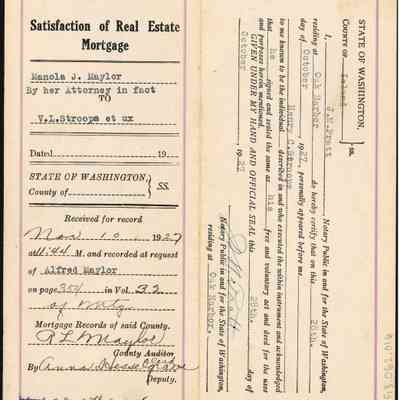 Satisfaction of Real Estate
Mortgage
Manola J. Maylor
By her Attorney in fact
TO
V.L.Stroops et ux
Dated 19
STATE OF WASHINGTON,
County of
SS.
Received for record
Nov 10 1927
at 1:44 M. and recorded at request
of Alfred Maylor
on page 354 in Vol. 32
of Mtg
Mortgage Records of said County.
R L Maylor
County Auditor
By Anna
Deputy.
STATE OF WASHINGTON,
COUNTY OF Island
ss.
I, J.M.Pratt Notary Public in and for the State of Washington,
residing at Oak Harbor do hereby certify that on this 28th.
day of October 1927, personally appeared before me
Henry C.Stroops
to me known to be the individual described in and who executed the within instrument and acknowledged
that he signed and sealed the same as his free and voluntary act and deed for the uses
and purposes herein mentioned.
GIVEN UNDER MY HAND AND OFFICIAL SEAL this 28th. day of
October , 1927
Notary Public in and for the State of Washington,
residing at Oak Harbor.